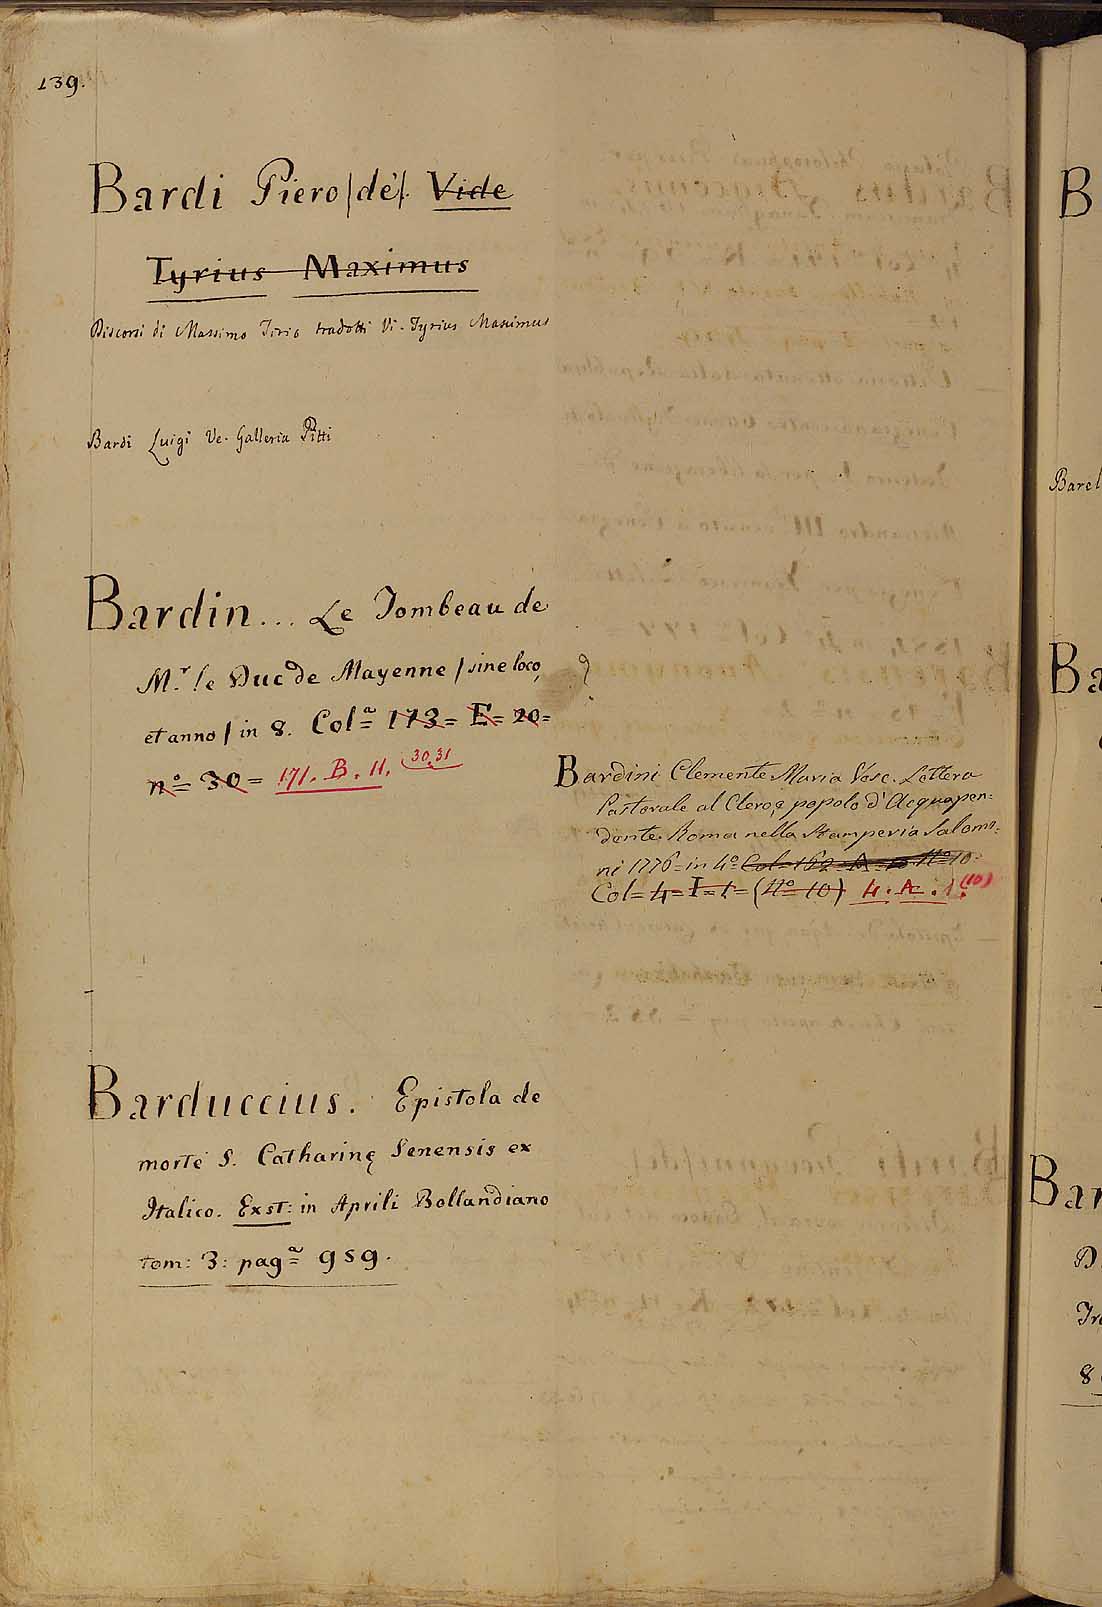 139.
Bardi Piero /de'/. Vide
Tyrius Maximus
Discorsi di Massimo Tirio tradotti Vi. Tyrius Maximus
Bardi Luigi Ve. Galleria Pitti
Bardin... Le Tombeau de
M.r le Duc de Mayenne / sine loco,
et anno / in 8. Col.a 173 = E = 20 =
n.o = 30 = 171. B. 11. 30.31
Bardini Clemente Maria Vesc. Lettera
Pastorale al Clero, e popolo d'Acquapen=
dente. Roma nella Stamperia Salomo=
ni 1776 = in 4.o Col = 162 = A = No 10.
Col = 4 = I = 1 = (No = 10) 4. A. 1. (10)
Barduccius. Epistola de
morte S. Catharinę Senensis ex
Italico. Exst: in Aprili Bollandiano
tom: 3: pag.a 959.
B
Barel
Ba
Bar
D
Tra
8